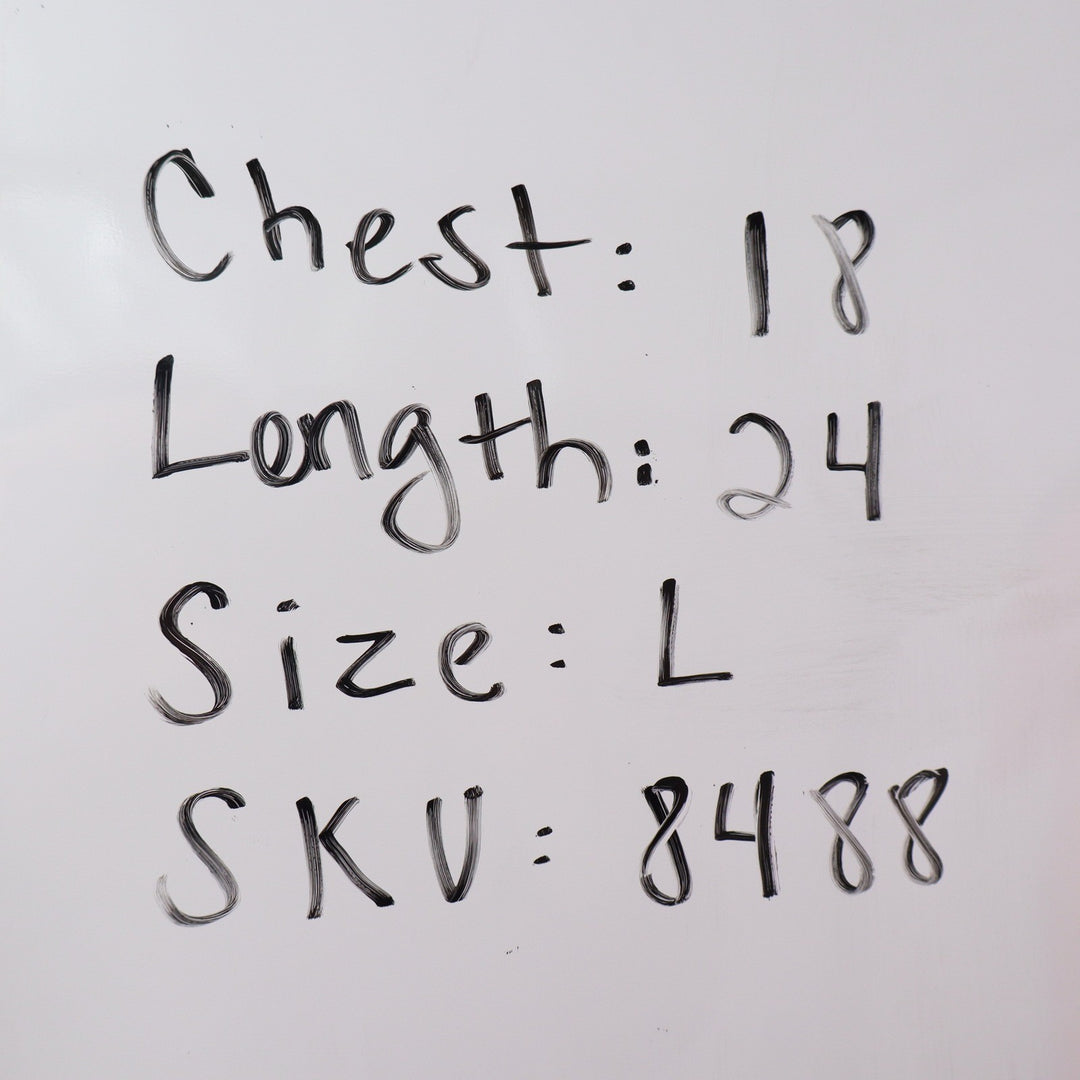 Chest: 18
Length: 24
Size: L
SKU: 8488